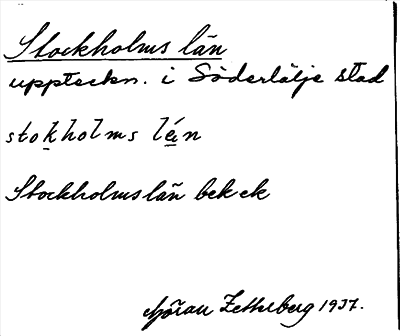 Stockholms län
uppteckn. i Södertälje stad
stokholms län
Stockholms län bek ek
Göran Zetterberg 1937.